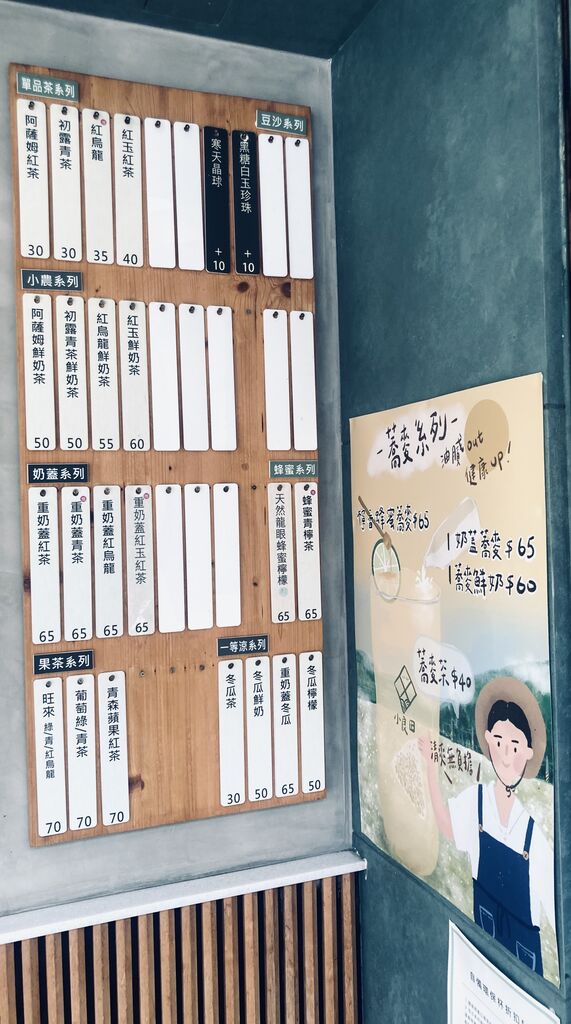 單品茶系列
阿薩姆紅茶 30
初露青茶 30
紅烏龍 35
紅玉紅茶 40
寒天晶球 +10
黑糖白玉珍珠 +10
豆沙系列
小農系列
阿薩姆鮮奶茶 50
初露青茶鮮奶茶 50
紅烏龍鮮奶茶 55
紅玉鮮奶茶 60
奶蓋系列
重奶蓋紅茶 65
重奶蓋青茶 65
重奶蓋紅烏龍 65
重奶蓋紅玉紅茶 65
蜂蜜系列
天然龍眼蜂蜜檸檬 65
蜂蜜青檸茶 65
果茶系列
旺來 綠/青/紅烏龍 70
葡萄綠/青茶 70
青森蘋果紅茶 70
一等涼系列
冬瓜茶 30
冬瓜鮮奶 50
重奶蓋冬瓜 65
冬瓜檸檬 50
-蕎麥系列-
油膩out
健康up!
檸香蜂蜜蕎麥$65
奶蓋蕎麥$65
蕎麥鮮奶$60
蕎麥茶$40
小良田
清爽無負擔!
自備環保杯折扣